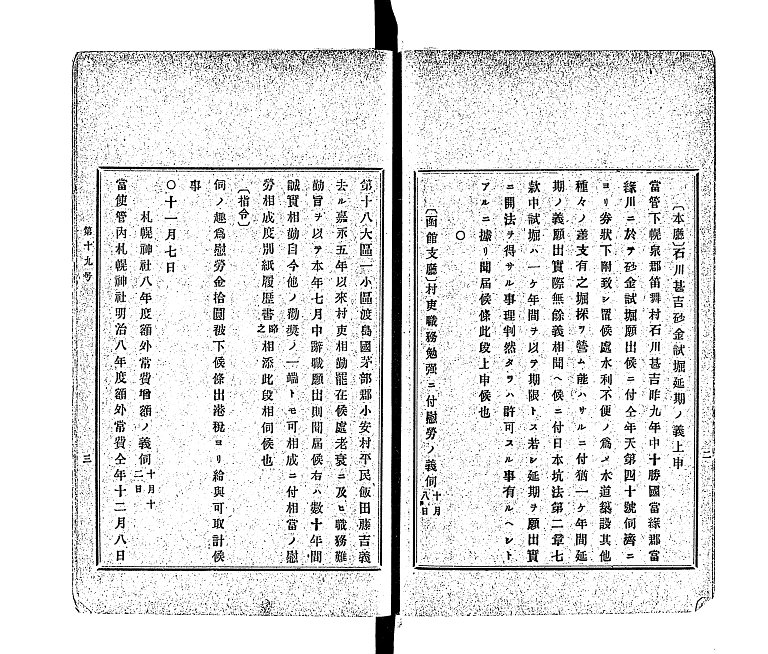 〔本廳〕石川甚吉砂金試堀延期ノ義上申
當管下幌泉郡笛舞村石川甚吉昨九年中十勝國當緣郡當
緣川ニ於テ砂金試堀願出候ニ付仝年天第四十號伺濟ニ
ヨリ劵狀下附致シ置候處水利不便ノ爲メ水道築設其他
種々ノ差支有之堀探ヲ營ム能ハサルニ付猶一ケ年間延
期ノ義願出實際無餘義相聞ヘ候ニ付日本坑法第二章七
欵中試堀ハ一ケ年間ヲ以テ期限トス若シ延期ヲ願出實
ニ開法ヲ得サル事理判然タラハ許可スル事有ルヘシト
アルニ據リ聞届候條此段上申候也
〇
〔函館支廳〕村吏職務勉强ニ付慰勞ノ義伺十月八日
二
第十八大區二小區渡島國茅部郡小安村平民飯田藤吉義
去ル嘉永五年以來村吏相勤罷在候處老衰ニ及ヒ職務難
勤旨ヲ以テ本年七月中辭職願出則聞届候右ハ數十年間
誠實相勤自今他ノ勸奬ノ一端トモ可相成ニ付相當ノ慰
勞相成度別紙履歷書略之相添此段相伺候也
〔指令〕
伺ノ趣爲慰勞金拾圓被下候條出港稅ヨリ給與可取計候
事
〇十一月七日
札幌神社八年度額外常費增額ノ義伺十月十二日
當使管內札幌神社明治八年度額外常費仝年十二月八日
第十九号
三